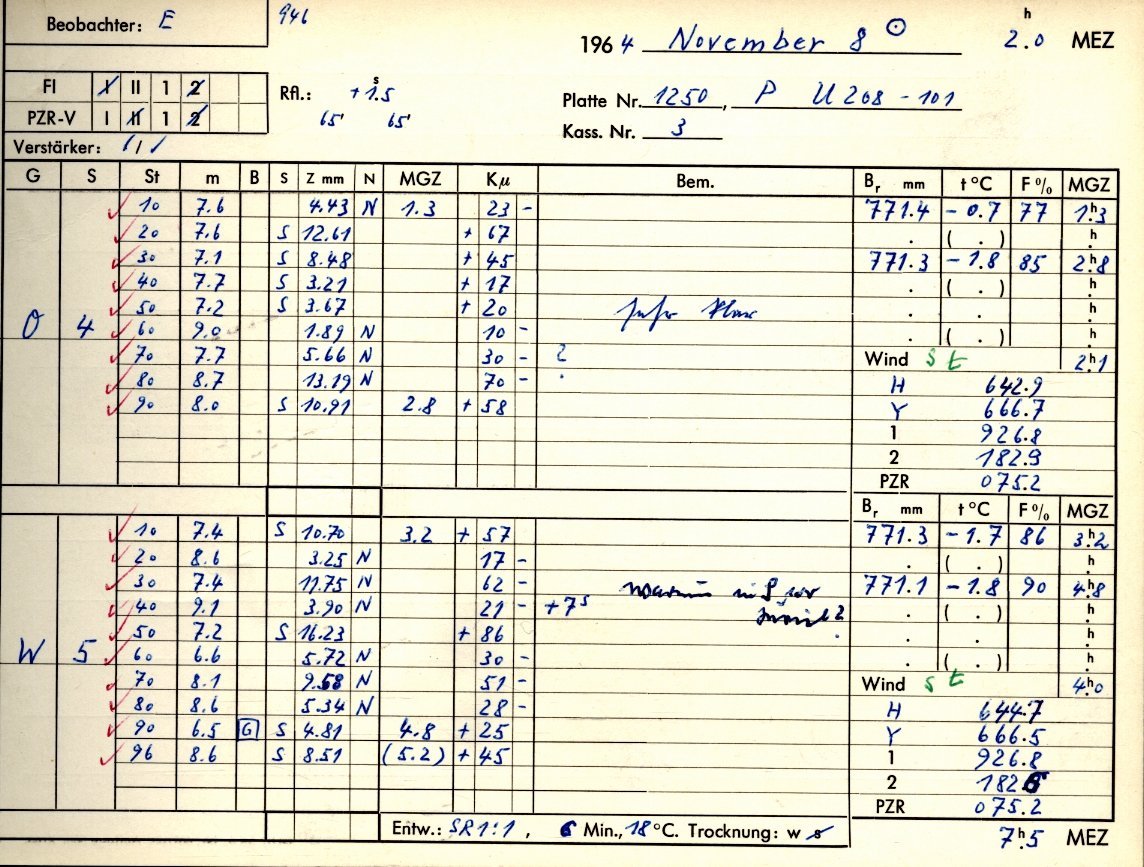 Beobachter: E 946
1964 November 8 ☉ 2.0 h MEZ
FI I II 1 2
Rfl.: +1.5 s
Platte Nr. 1250, P U 208 - 101
PZR-V I II 1 2
65' 65'
Kass. Nr. 3
Verstärker: 1/1
G S St m B S Z mm N MGZ Kμ Bem. Br mm t °C F % MGZ
10 7.6 4.43 N 1.3 23 - 771.4 - 0.7 77 1h.3
20 7.6 S 12.61 + 67 . ( . ) h.
30 7.1 S 8.48 + 45 771.3 - 1.8 85 2h.8
40 7.7 S 3.21 + 17 . ( . ) h.
50 7.2 S 3.67 + 20 . . h.
O 4 60 9.0 1.89 N 10 - . ( . ) h.
70 7.7 5.66 N 30 - ? Wind S t 2h.1
80 8.7 13.19 N 70 - H 642.9
90 8.0 S 10.91 2.8 + 58 Y 666.7
1 926.8
2 182.9
PZR 075.2
Br mm t °C F % MGZ
10 7.4 S 10.70 3.2 + 57 771.3 - 1.7 86 3h.2
20 8.6 3.25 N 17 - . ( . ) h.
30 7.4 11.75 N 62 - 771.1 - 1.8 90 4h.8
40 9.1 3.90 N 21 - +7s . ( . ) h.
50 7.2 S 16.23 + 86 . . h.
W 5 60 6.6 5.72 N 30 - . ( . ) h.
70 8.1 9.58 N 51 - Wind S t 4h.0
80 8.6 5.34 N 28 - H 644.7
90 6.5 G S 4.81 4.8 + 25 Y 666.5
96 8.6 S 8.51 (5.2) + 45 1 926.8
2 182.6
PZR 075.2
Entw.: SR 1:1, 6 Min., 18 °C. Trocknung: w s 7h.5 MEZ